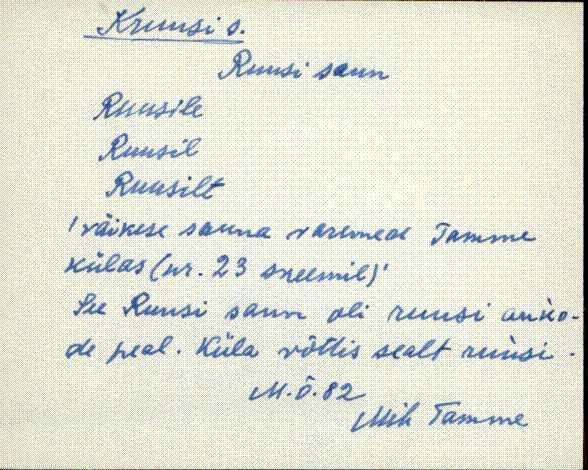 Kruusi s.
Ruusi saun
Ruusile
Ruusil
Ruusilt
'väikese sauna varemed Tamme
külas (nr. 23 skeemil)'
See Ruusi saun oli ruusi auko-
de peal. Küla võttis sealt ruusi.
M.Õ.82
Mih Tamme